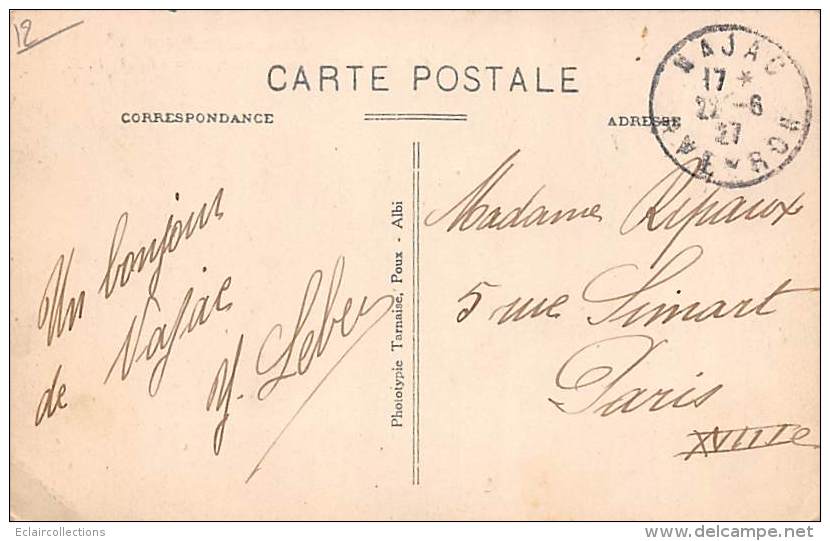 12
CARTE POSTALE
CORRESPONDANCE
ADRESSE
NAJAC
17 *
22 - 6
27
TARN * GOR
Un bonjour
de Najac
Y. Leber
Phototypie Tarnaise, Poux - Albi
Madame Ripaux
5 rue Simart
Paris
XVIIIe
Eclaircollections
delcampe.net